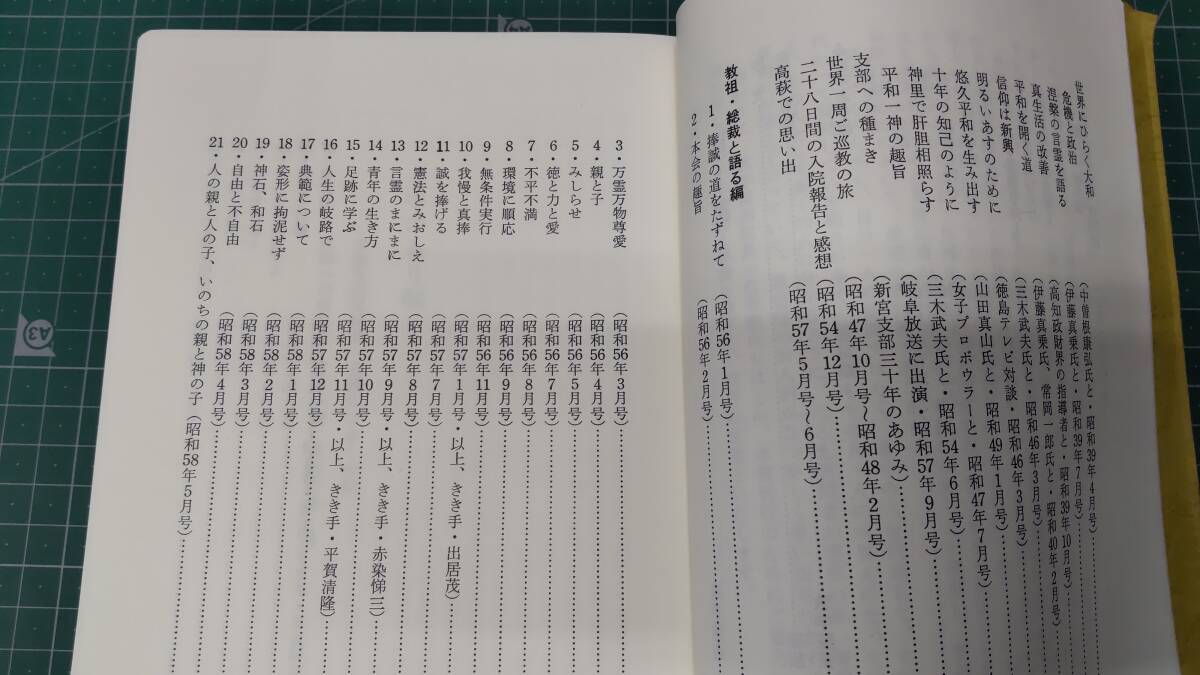 世界にひらく大和
危機と政治（中曽根康弘氏と・昭和39年4月号）
涅槃の言霊を語る（伊藤真乗氏と・昭和39年7月号）
真生活の改善（高知政財界の指導者と・昭和39年10月号）
平和を開く道（伊藤真乗氏、常岡一郎氏と・昭和40年2月号）
信仰は新興（三木武夫氏と・昭和46年3月号）
明るいあすのために（徳島テレビ対談・昭和46年3月号）
悠久平和を生み出す（山田真山氏と・昭和49年1月号）
十年の知己のように（女子プロボウラーと・昭和47年7月号）
神里で肝胆相照らす（三木武夫氏と・昭和54年6月号）
平和一神の趣旨（岐阜放送に出演・昭和57年9月号）
支部への種まき（新宮支部三十年のあゆみ）
世界一周ご巡教の旅（昭和47年10月号～昭和48年2月号）
二十八日間の入院報告と感想（昭和54年12月号）
高萩での思い出（昭和57年5月号～6月号）
教祖・総裁と語る編
1・捧誠の道をたずねて（昭和56年1月号）
2・本会の趣旨（昭和56年2月号）
3・万霊万物尊愛（昭和56年3月号）
4・親と子（昭和56年4月号）
5・みしらせ（昭和56年5月号）
6・徳と力と愛（昭和56年6月号）
7・不平不満（昭和56年8月号）
8・環境に順応（昭和56年9月号）
9・無条件実行（昭和56年11月号）
10・我慢と真捧（昭和57年1月号・以上、きき手・出居茂）
11・誠を捧げる（昭和57年7月号）
12・憲法とみおしえ（昭和57年8月号）
13・言霊のまにまに（昭和57年9月号・以上、きき手・赤染悌三）
14・青年の生き方（昭和57年10月号）
15・足跡に学ぶ（昭和57年11月号・以上、きき手・平賀清隆）
16・人生の岐路で（昭和57年12月号）
17・典範について（昭和58年1月号）
18・姿形に拘泥せず（昭和58年2月号）
19・神石、和石（昭和58年3月号）
20・自由と不自由（昭和58年4月号）
21・人の親と人の子、いのちの親と神の子（昭和58年5月号）
A3